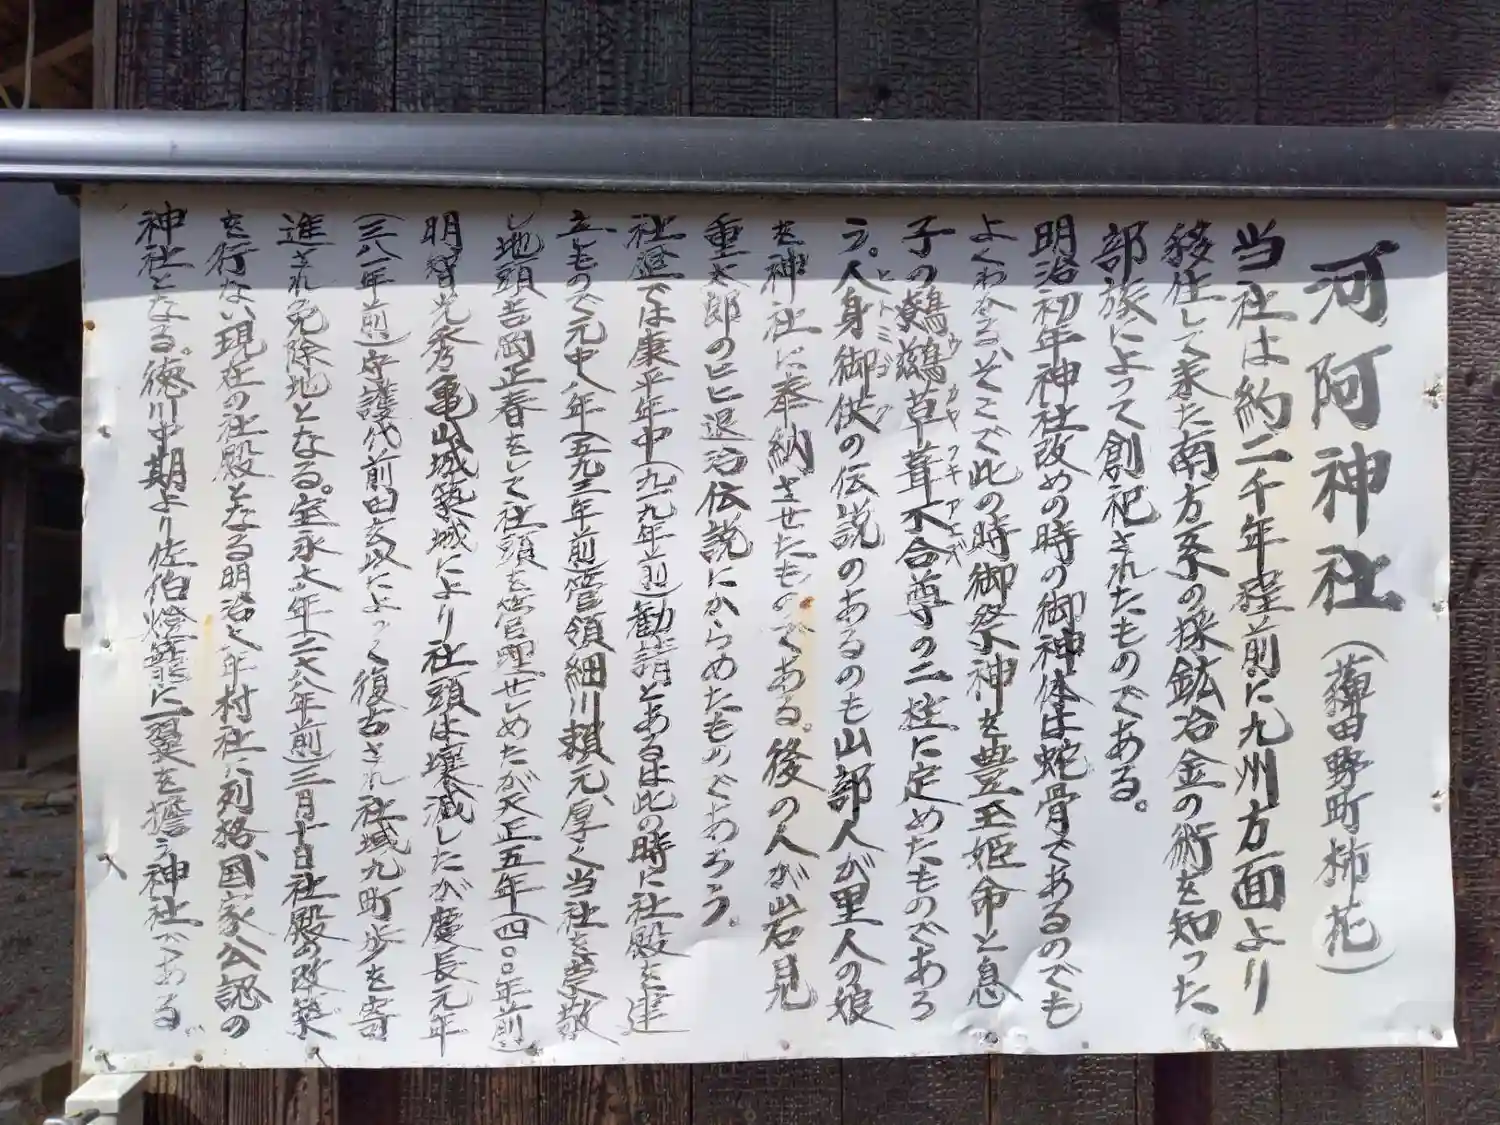 河阿神社(薭田野町柿花)
当社は約二千年程前に九州方面より
移住して来た南方系の採鉱冶金の術を知った
部族によって創祀されたものである。
明治初年神社改めの時の御神体は蛇骨であるのでも
よくわかる。そこで此の時御祭神を豊玉姫命と息
子の鵜鶿草葺不合尊の二柱に定めたものであろ
ウ ガヤ フキ アエズ
う。人身御伏の伝説のあるのも山部人が里人の娘
ヒトミゴクウ
を神社に奉納させたものである。後の人が岩見
重太郎のヒヒ退治伝説にからめたものであろう。
社歴では康平年中(九一九年前)勧請とあるは此の時に社殿を建
立しもので元中八年(五九三年前)管領細川頼元厚く当社を尊敬
し地頭吉岡正春をして社頭を管理せしめたが天正五年(四〇〇年前)
明智光秀亀山城築城により社頭は壊滅したが慶長元年
(三八一年前)守護代前田玄以によって復古され社域九町歩を寄
進され免除地となる。宝永六年(二六八年前)三月十日社殿の改築
を行ない現在の社殿となる明治七年村社に列格国家公認の
神社となる。徳川中期より佐伯燈籠に一翼を擔う神社である。